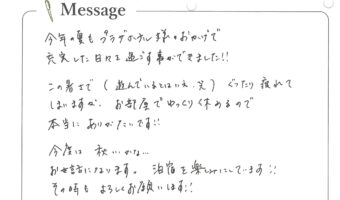 Message
今年の夏も プラザホテル様のおかげで
充実した日々を過ごす事ができました!!
この暑さで ( 遊んでいるとはいえ.笑) ぐったり 疲れて
しまいますが、 お部屋で ゆっくり休めるので
本当に ありがたいです!!
今度は 秋いかな…
お世話になります。 泊宿を楽しみにしています!!
その時も よろしくお願いします!!